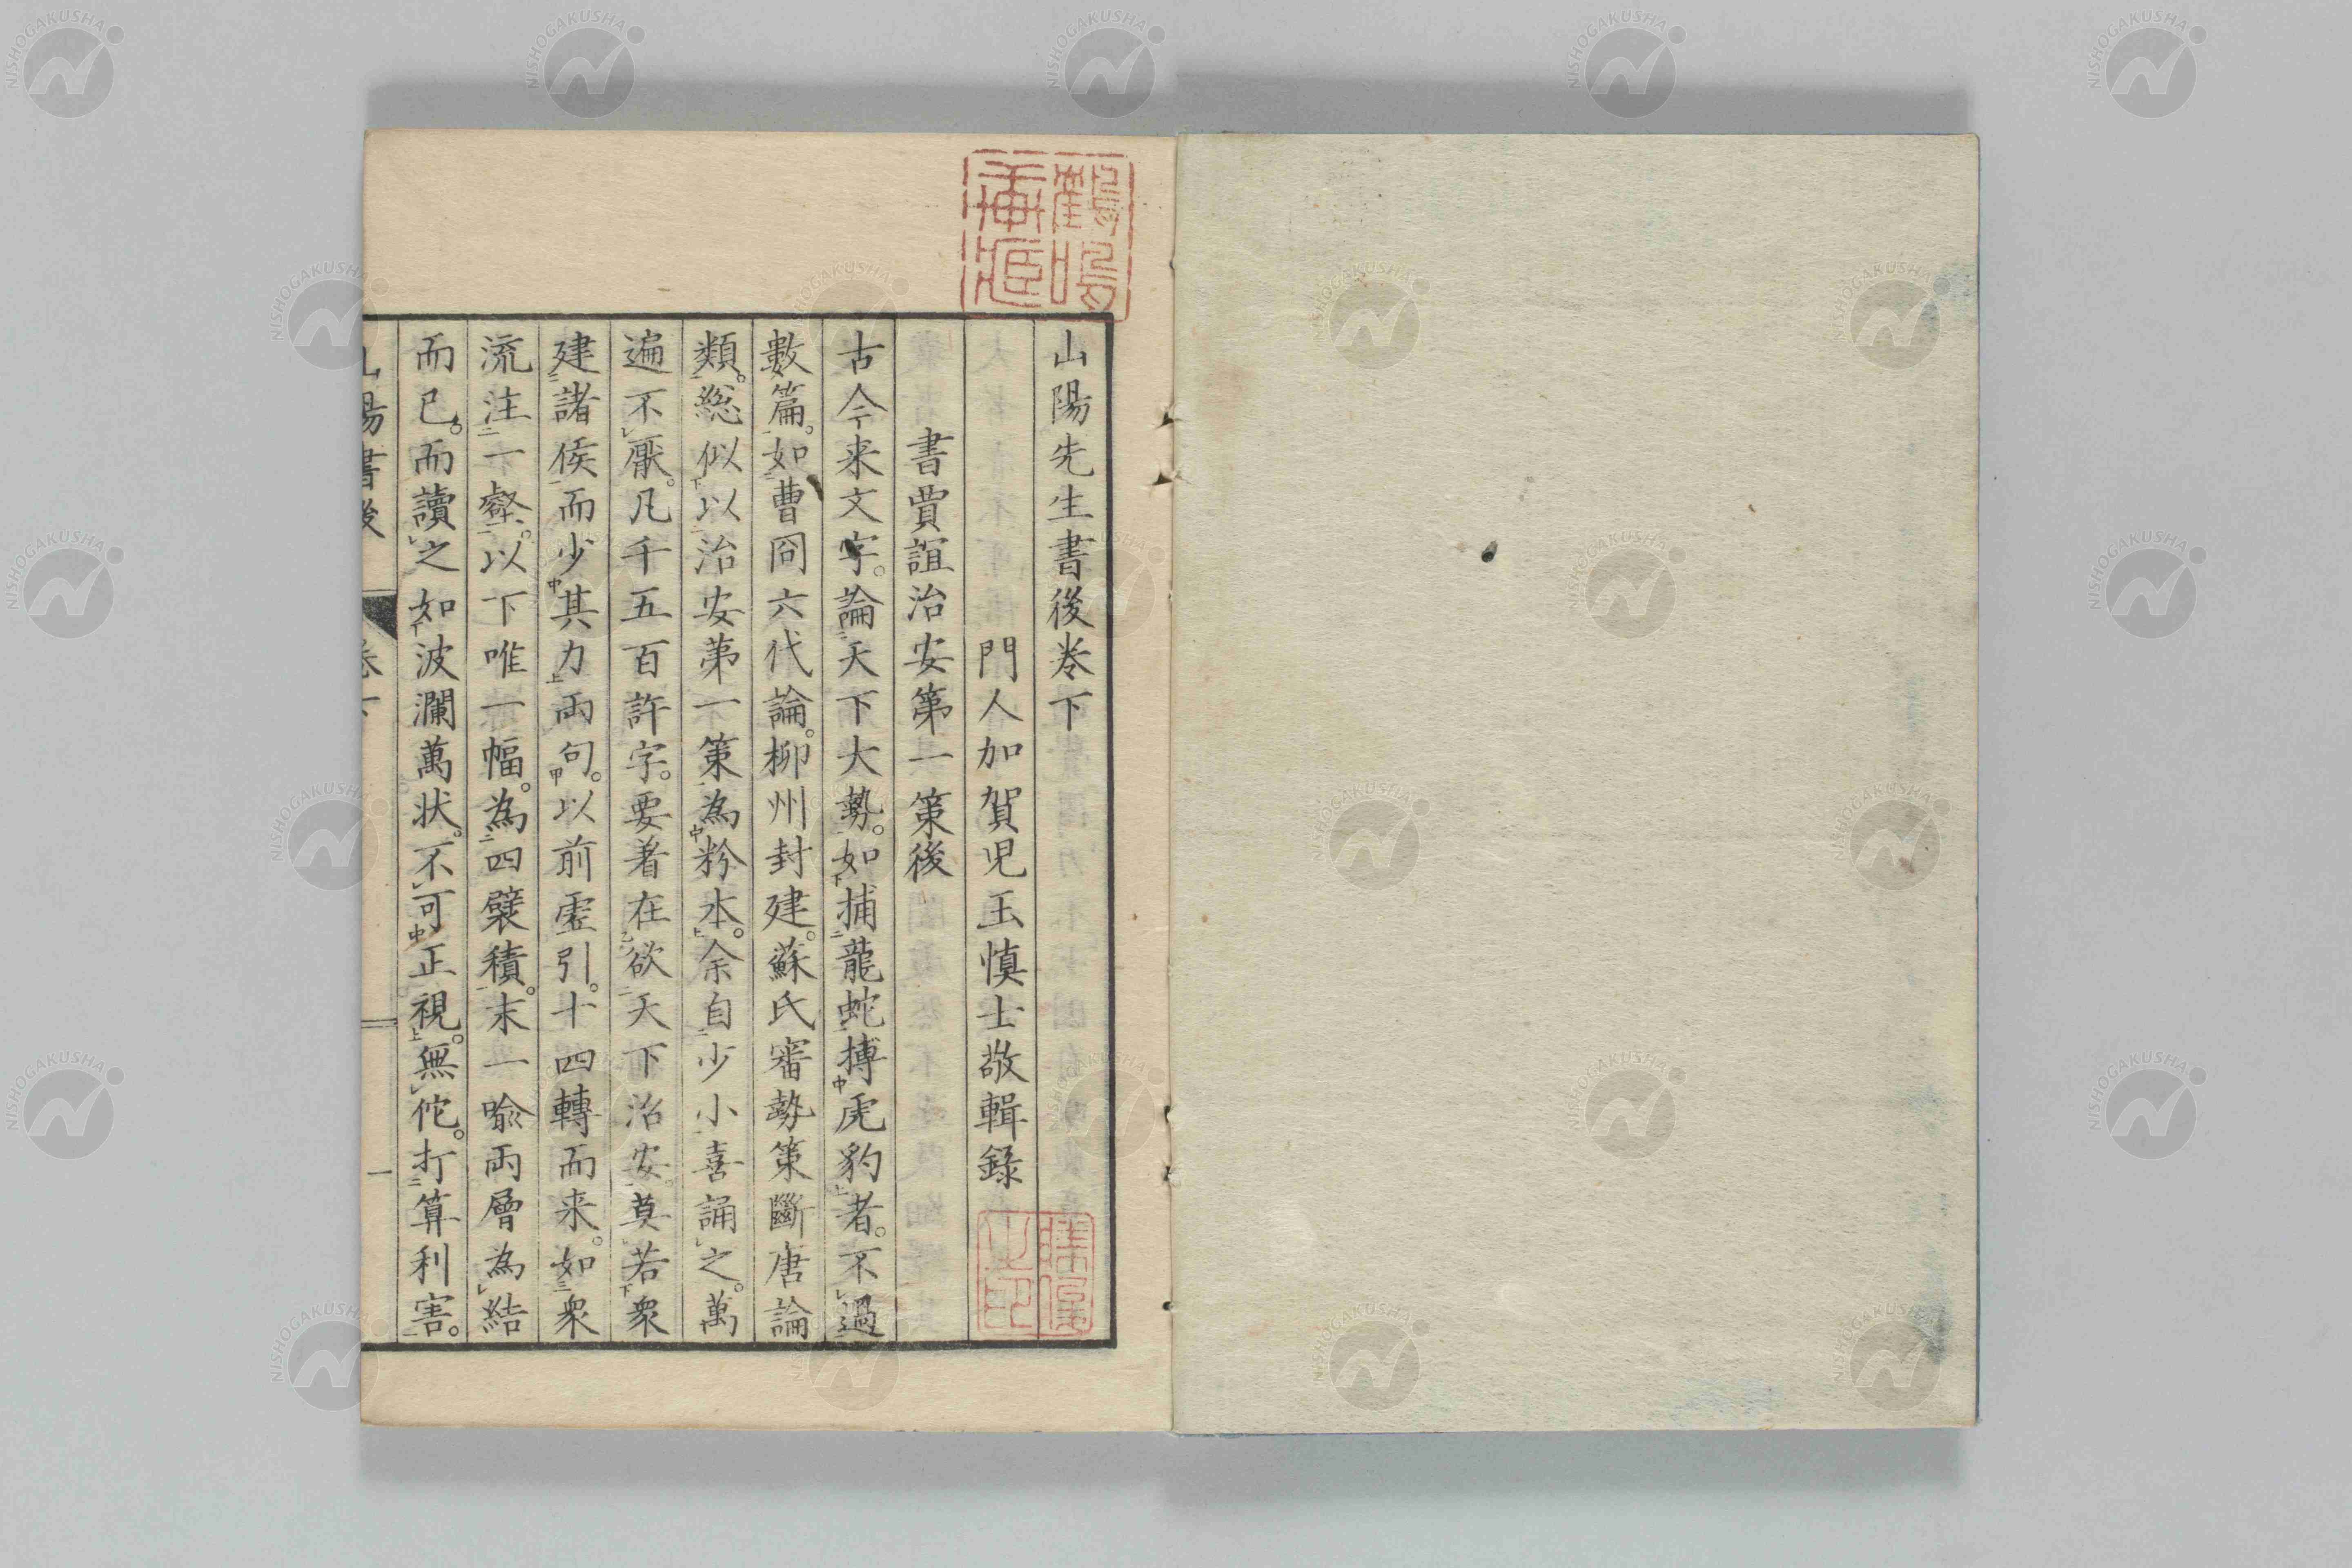 山陽先生書後卷下
門人加賀児玉慎士敬輯錄
書賈誼治安第一策後
古今来文字。論天下大勢。如捕龍蛇搏虎豹者。不過
數篇。如曹冏六代論。柳州封建。蘇氏審勢策斷唐論
類。総似以治安第一策為粉本。余自少小喜誦之。萬
遍不厭。凡千五百許字。要着在欲天下治安。莫若衆
建諸侯而少其力兩句。以前虛引。十四轉而来。如衆
流注一壑。以下唯一幅。為四襞積。末一喩兩層為結
而已。而讀之如波瀾萬状。不可正視。無佗。打算利害。
山陽書後 卷下 一
NISHOGAKUSHA